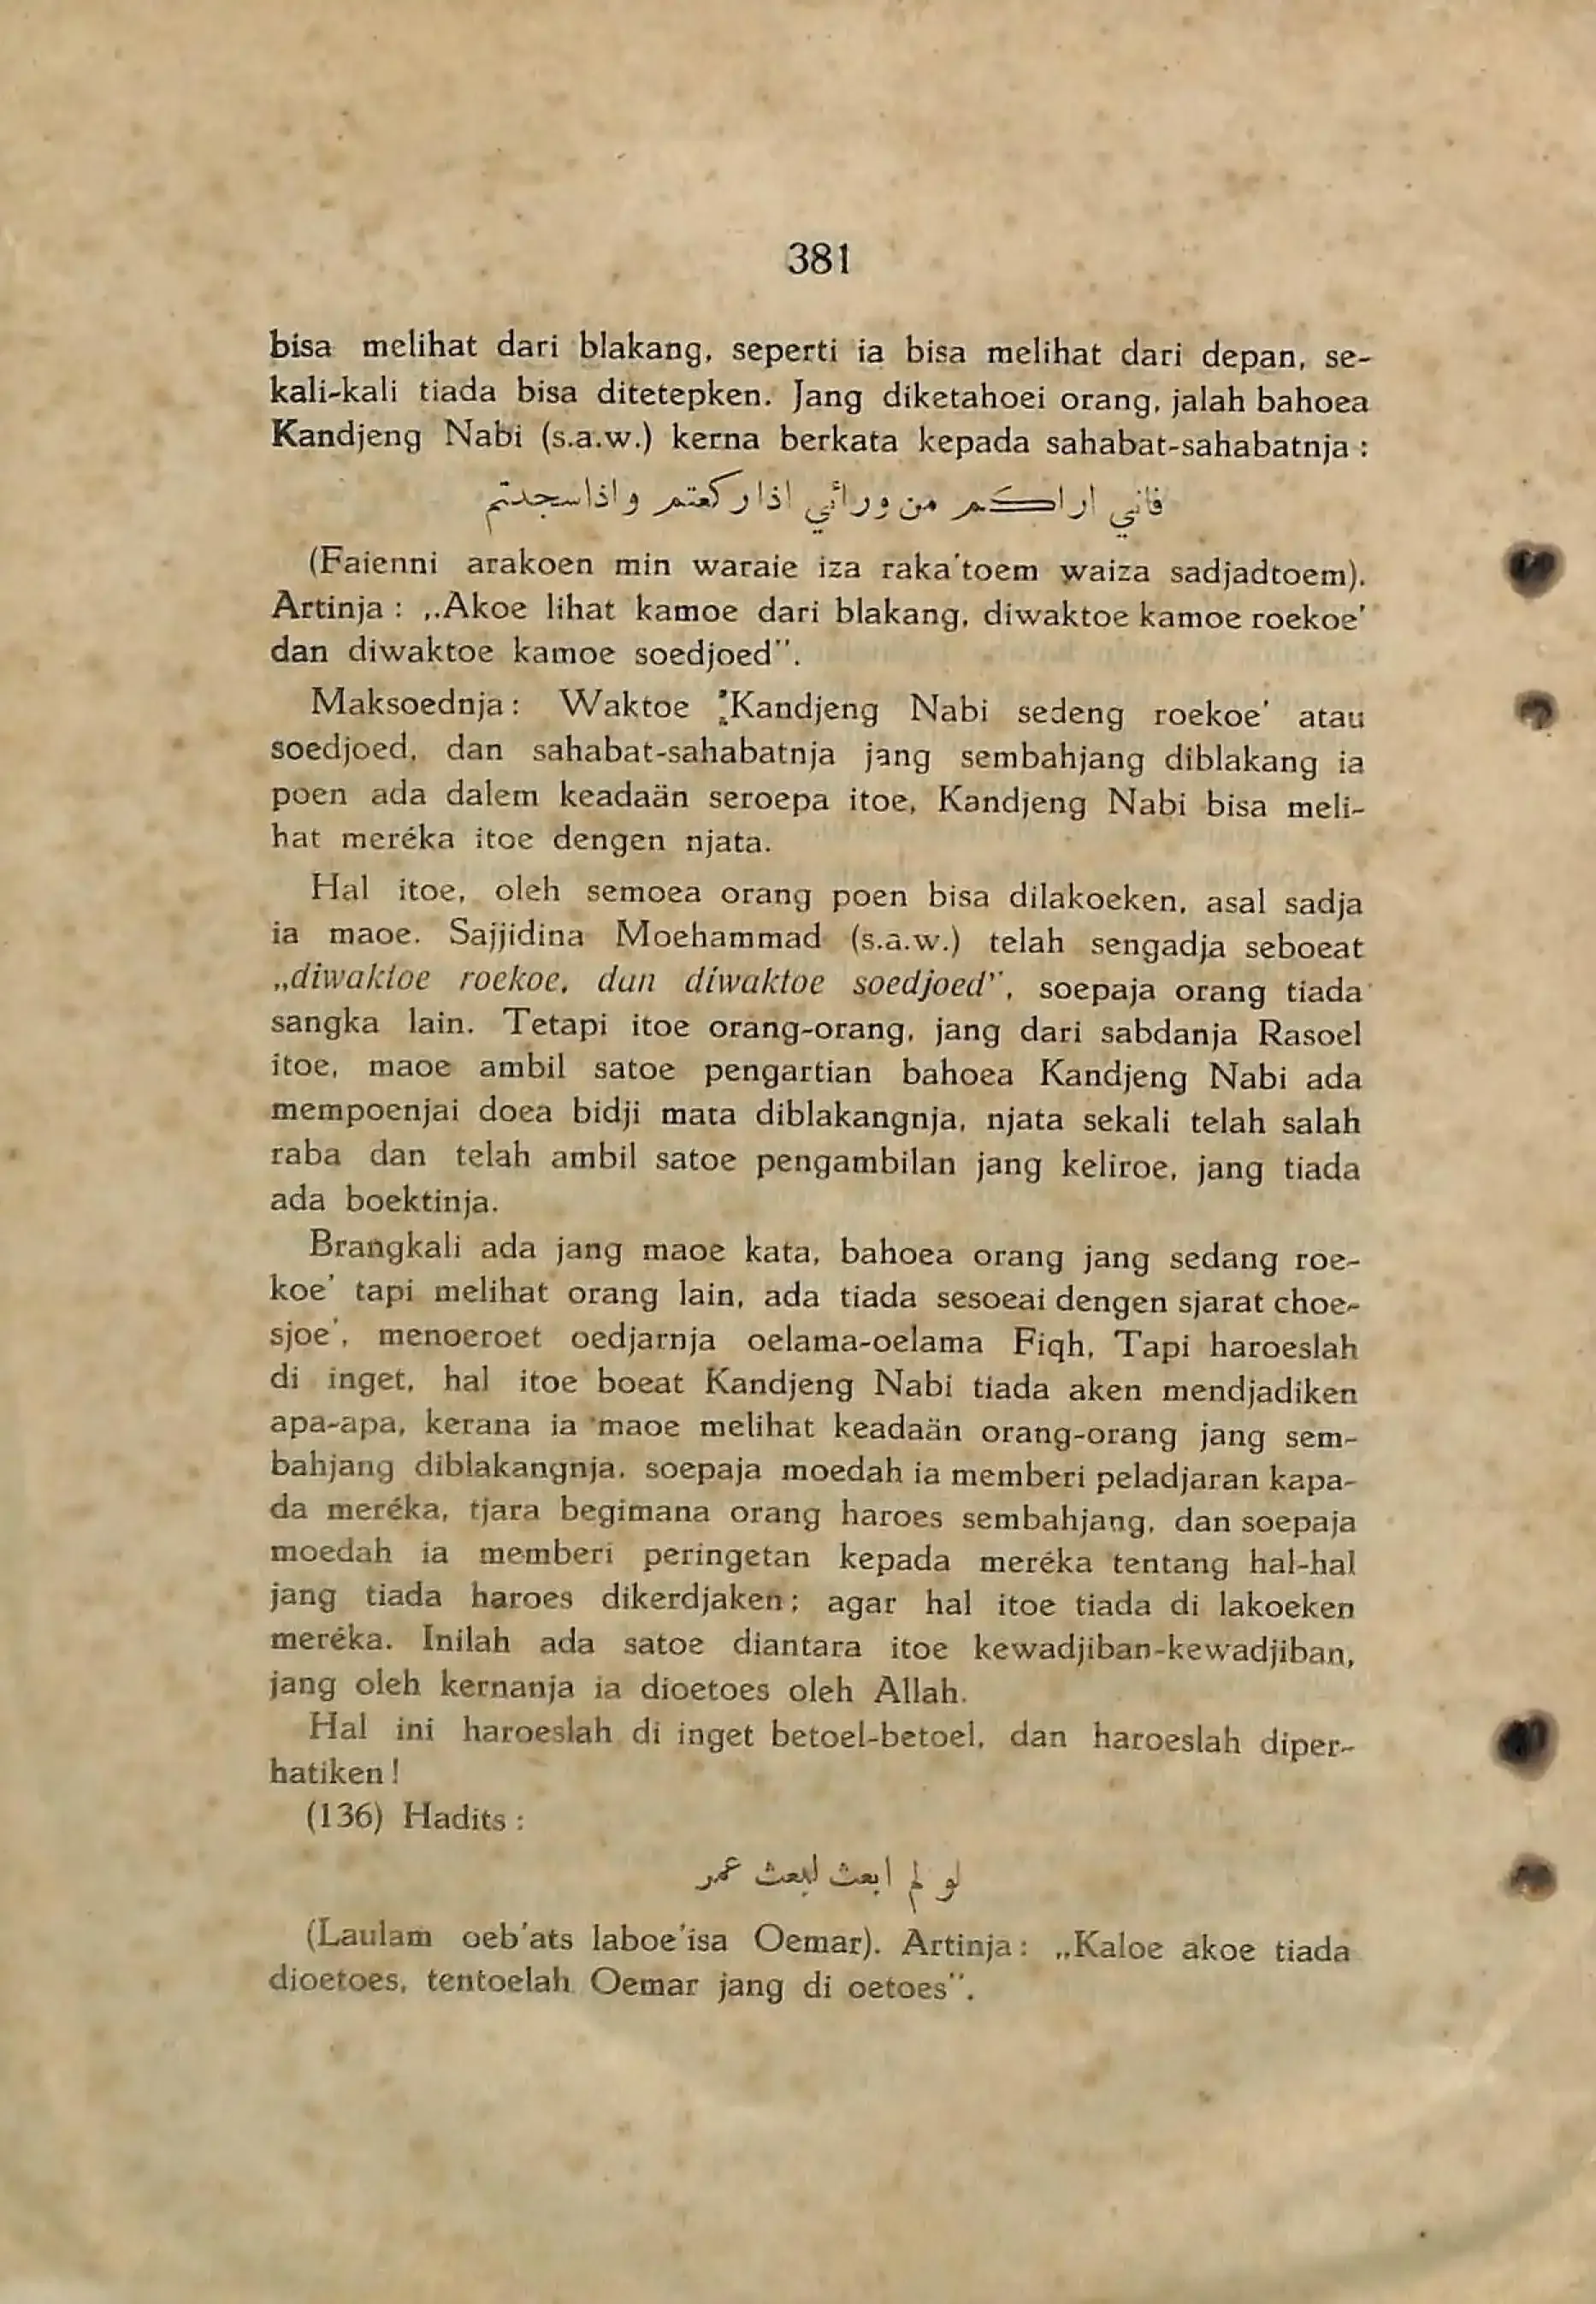 381
bisa melihat dari blakang, seperti ia bisa melihat dari depan, se-
kali-kali tiada bisa ditetepken. Jang diketahoei orang, jalah bahoea
Kandjeng Nabi (s.a.w.) kerna berkata kepada sahabat-sahabatnja :
فاني اراكم من ورائي اذا ركعتم و اذا سجدتم
(Faienni arakoen min waraie iza raka'toem waiza sadjadtoem).
Artinja : „Akoe lihat kamoe dari blakang, diwaktoe kamoe roekoe'
dan diwaktoe kamoe soedjoed".
Maksoednja: Waktoe Kandjeng Nabi sedeng roekoe' atau
soedjoed, dan sahabat-sahabatnja jang sembahjang diblakang ia
poen ada dalem keadaän seroepa itoe, Kandjeng Nabi bisa meli-
hat meréka itoe dengen njata.
Hal itoe, oleh semoea orang poen bisa dilakoeken, asal sadja
ia maoe. Sajjidina Moehammad (s.a.w.) telah sengadja seboeat
„diwaktoe roekoe, dan diwaktoe soedjoed", soepaja orang tiada
sangka lain. Tetapi itoe orang-orang, jang dari sabdanja Rasoel
itoe, maoe ambil satoe pengartian bahoea Kandjeng Nabi ada
mempoenjai doea bidji mata diblakangnja, njata sekali telah salah
raba dan telah ambil satoe pengambilan jang keliroe, jang tiada
ada boektinja.
Brangkali ada jang maoe kata, bahoea orang jang sedang roe-
koe' tapi melihat orang lain, ada tiada sesoeai dengen sjarat choe-
sjoe', menoeroet oedjarnja oelama-oelama Fiqh, Tapi haroeslah
di inget, hal itoe boeat Kandjeng Nabi tiada aken mendjadiken
apa-apa, kerana ia maoe melihat keadaän orang-orang jang sem-
bahjang diblakangnja, soepaja moedah ia memberi peladjaran kapa-
da meréka, tjara begimana orang haroes sembahjang, dan soepaja
moedah ia memberi peringetan kepada meréka tentang hal-hal
jang tiada haroes dikerdjaken; agar hal itoe tiada di lakoeken
meréka. Inilah ada satoe diantara itoe kewadjiban-kewadjiban,
jang oleh kernanja ia dioetoes oleh Allah.
Hal ini haroeslah di inget betoel-betoel, dan haroeslah diper-
hatiken !
(136) Hadits :
لو لم ابعث لبعث عمر
(Laulam oeb'ats laboe'isa Oemar). Artinja : „Kaloe akoe tiada
dioetoes, tentoelah Oemar jang di oetoes".